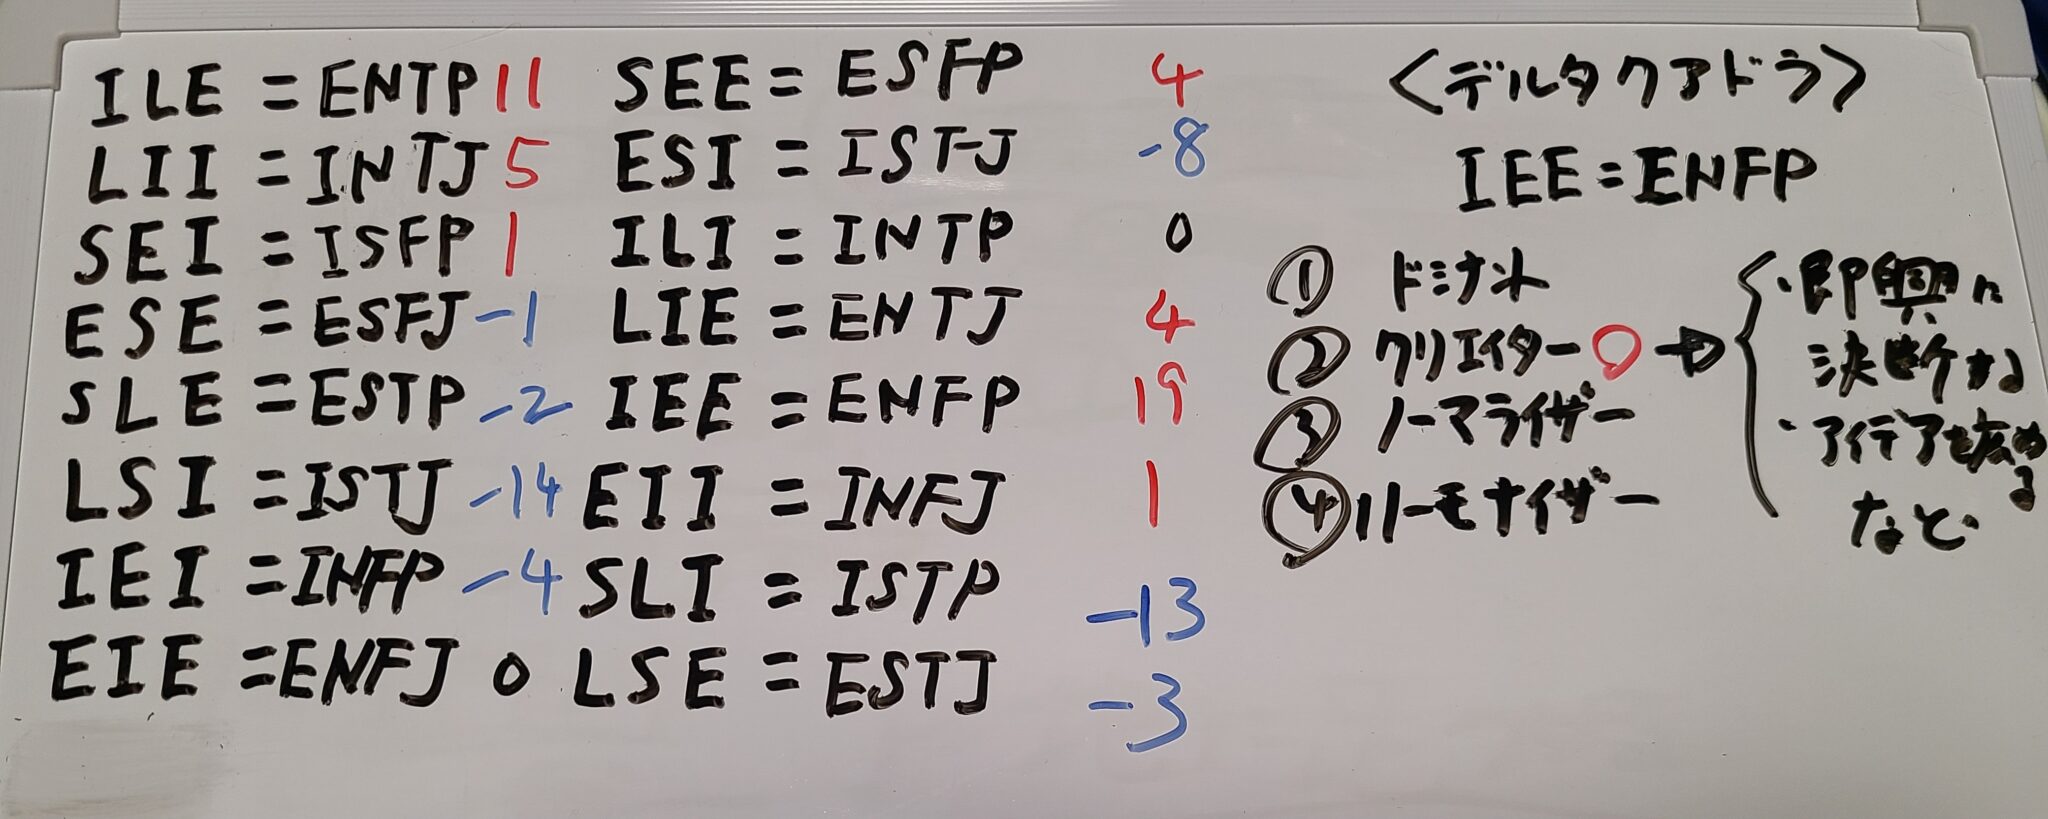 ILE = ENTP 11
LII = INTJ 5
SEI = ISFP 1
ESE = ESFJ -1
SLE = ESTP -2
LSI = ISTJ -14
IEI = INFP -4
EIE = ENFJ 0
SEE = ESFP 4
ESI = ISTJ -8
ILI = INTP 0
LIE = ENTJ 4
IEE = ENFP 19
EII = INFJ 1
SLI = ISTP -13
LSE = ESTJ -3
<デルタクアドラ>
IEE = ENFP
① ドミナント
② クリエイター○→
③ ノーマライザー
④ ハーモナイザー
・即興に
決断する
・アイデアを広め
る
など